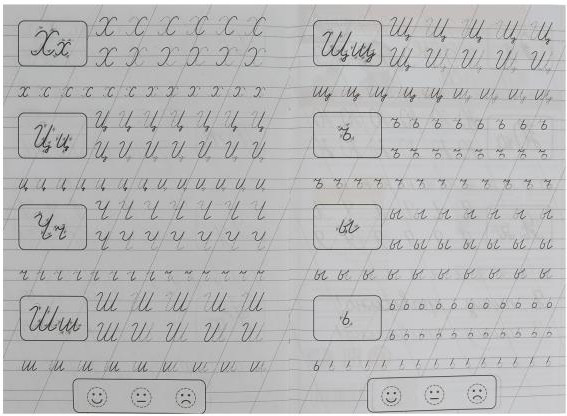 Хх
Х С С С С С
Х Х Х Х Х Х
х х х х х х х х х
Цц
Ц Ц Ц Ц Ц Ц Ц
Ц И И И И И И
ц ц ц ц ц ц ц ц ц ц
Чч
Ч Ч Ч Ч Ч Ч Ч
Ч Ч Ч Ч Ч Ч Ч
ч ч ч ч ч ч ч ч ч ч ч
Шш
Ш Ш Ш Ш Ш
Ш И И И И
ш ш ш ш ш ш ш ш
Щщ
Щ Щ Щ Щ Щ
Щ И И И И
щ щ щ щ щ щ щ щ щ
ъ
ъ ъ ъ ъ ъ ъ ъ ъ
ъ ъ ъ ъ ъ ъ ъ ъ
ъ ъ ъ ъ ъ ъ ъ ъ ъ ъ ъ
ы
ы ы ы ы ы ы ы
ы ы ы ы ы ы ы
ы ы ы ы ы ы ы ы ы ы
ь
ь ь ь ь ь ь ь ь ь ь ь
ь ь ь ь ь ь ь ь ь ь ь
ь